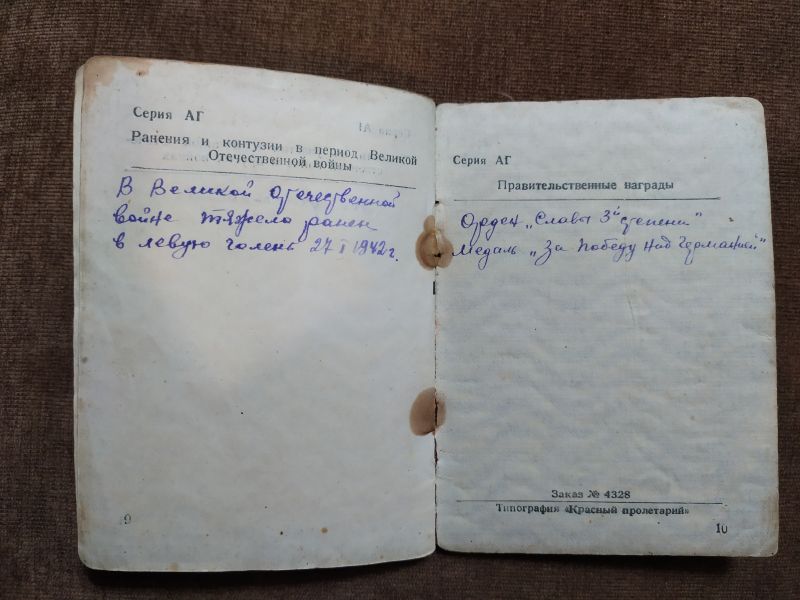 Серия АГ
Ранения и контузии в период Великой
Отечественной войны
В Великой отечественной
войне тяжело ранен
в левую голень 27 I 1942 г.
9
Серия АГ
Правительственные награды
Орден „Славы 3й степени"
Медаль „За Победу над Германией"
Заказ № 4328
Типография «Красный пролетарий»
10